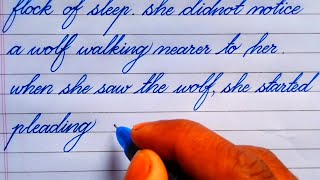 flock of sleep. she didnot notice
a wolf walking nearer to her.
when she saw the wolf, she started
pleading